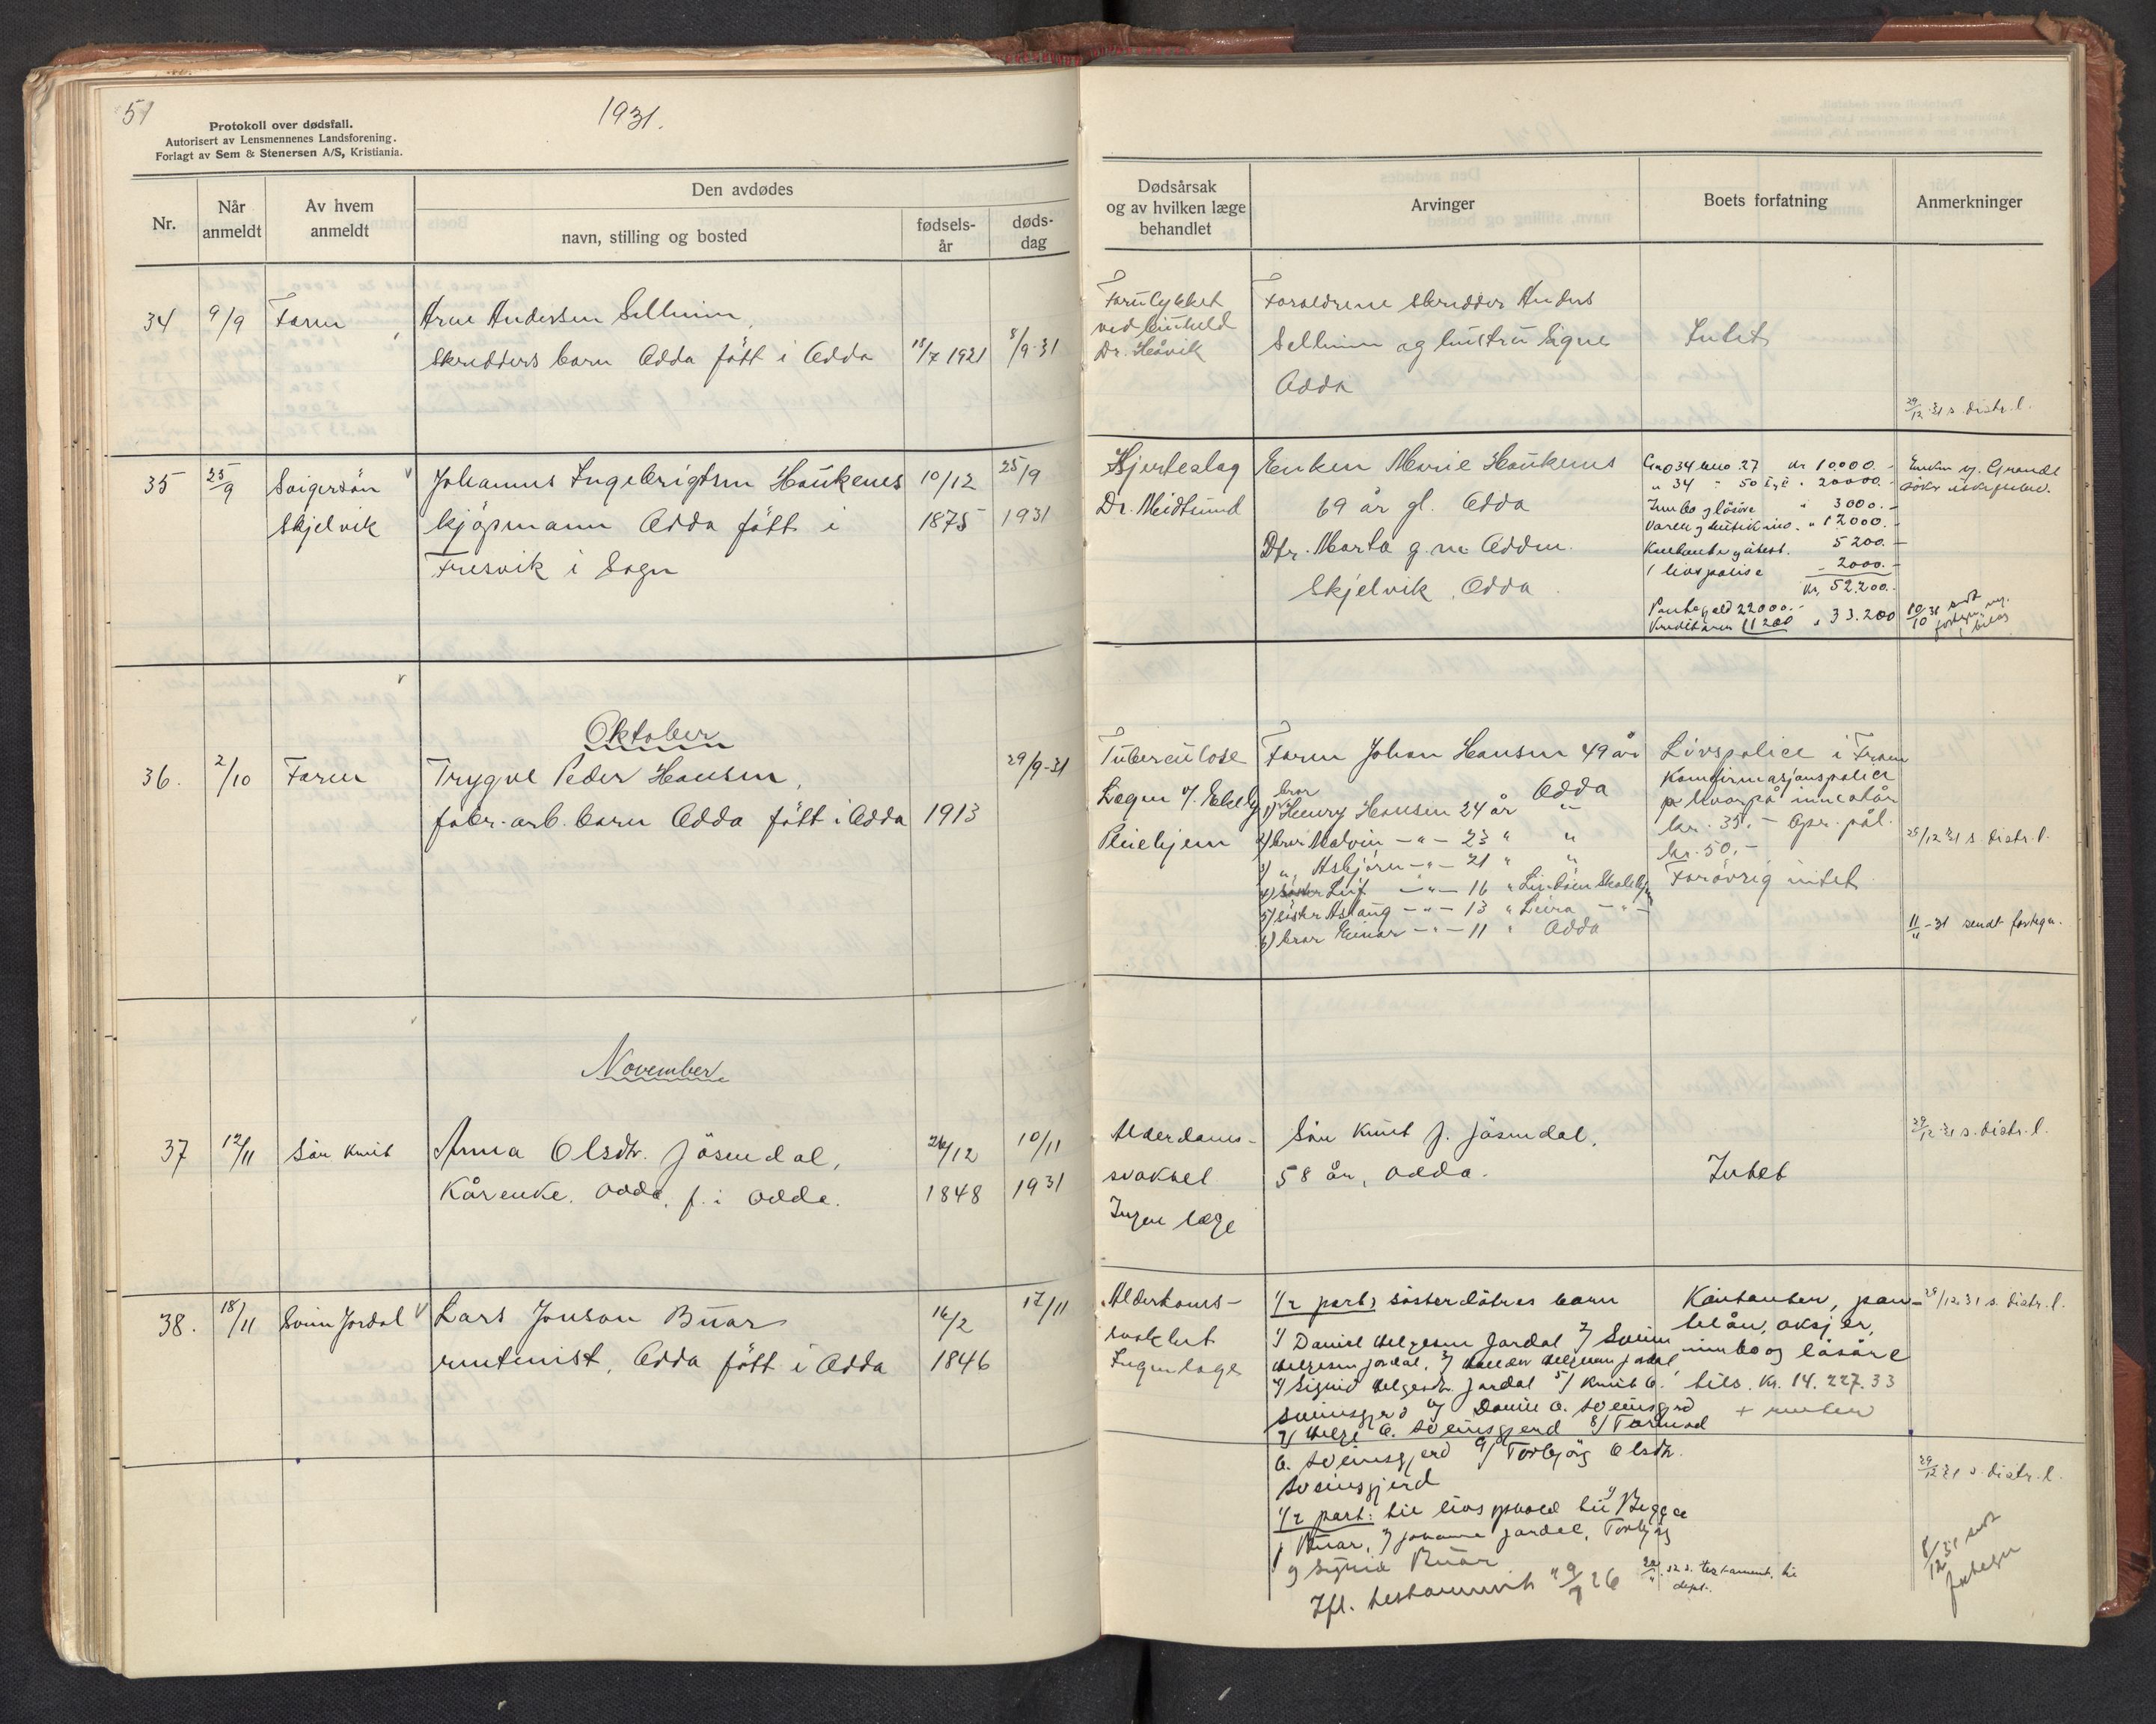 51
1931.
Protokoll over dødsfall.
Autorisert av Lensmennenes Landsforening.
Forlagt av Sem & Stenersen A/S, Kristiania.
Nr.
Når anmeldt
Av hvem anmeldt
Den avdødes
navn, stilling og bosted
fødsels-år
døds-dag
Dødsårsak og av hvilken læge behandlet
Arvinger
Boets forfatning
Anmerkninger
34 9/9 Faren
Arne Andersen Sellheim
Skredders barn Odda född i Odda 15/7 1921 8/9-31
Forulykket
Dr. Håvik
Foreldrene skredder Anders
Sellheim og hustru Signe
Odda
Intet
29/12 31 s. distr. l.
35 25/9 Svigersön
Skjelvik
Johannes Ingebrigtsen Haukenes 10/12 25/9
kjöpmann Odda fött i 1875 1931
Fresvik i Sogn
Hjerteslag
Dr. Meidtsund
Enken Marie Haukenes
69 år gl. Odda
Dtr. Marta g.m. Odden
Skjelvik, Odda
Gno 34 bno 27 kr 10000.-
" 34 " 50 " 20000.-
Innbo og lösöre " 3000.-
" 12000.-
5200.-
1 livspolise - 2000.-
kr. 52.200.-
Pantegjeld 22000.-
Kreditorer 11200 " 33.200
10/10 31 sendt
Oktober
36. 2/10 Faren
Trygve Peder Hansen,
fabr.-arb. barn Odda fött i Odda 1913 29/9-31
Tuberculose
Pleiehjem
Faren Johan Hansen 49 år
Odda
bror
1) Henry Hansen 24 år "
2) bror Malvin -"- 23 " "
3) " Asbjörn -"- 21 " "
4) Leif -"- 16 "
5) söster Aslaug -"- 13 " Leira -"-
6) bror Einar -"- 11 " Odda
Livspolice i Fram
Konfirmasjonspolice
kr. 35.-
kr. 50.-
Forövrig intet
29/12 31 s. distr. l.
11/11-31 sendt fortegn.
November
37 12/11 Sön Knut
Anna Olsdtr. Jösendal, 26/12 10/11
Kårenke. Odda. f. i Odda. 1848 1931
Alderdoms-
svakhet
Ingen læge
Sön Knut J. Jösendal,
58 år, Odda.
Intet
29/12 31 s. distr. l.
38. 18/11 Svein Jordal
Lars Jonson Buar 16/2 17/11
rentenist, Odda fött i Odda 1846
Alderdoms-
svakhet
Ingen læge
1/2 part, sösterdötres barn
1/ Daniel Helgesen Jordal 2/ Svein
Helgesen Jordal, 3/ Helgesen Jordal
4/ Sigrid Helgesdtr. Jordal 5/ Knut O.
Sveinsgjerd 6/ Daniel O. Sveinsgjerd
7/ Helge O. Sveinsgjerd 8/ Tormod
O. Sveinsgjerd 9/ Torbjörg Olsdtr.
Sveinsgjerd
1/2 part: til livs ophold til
Buar, Johanne Jordal, Torbjörg
og Sigrid Buar
Ifl. testament 9/7 26
s. testament. til
dept.
Kontanter, pan-
telån, aksjer,
innbo og lösöre
tils. kr. 14.227.33
+ renter
29/12 31 s. distr. l.
29/12 31 s. distr. l.
8/12 31 sendt
fortegn